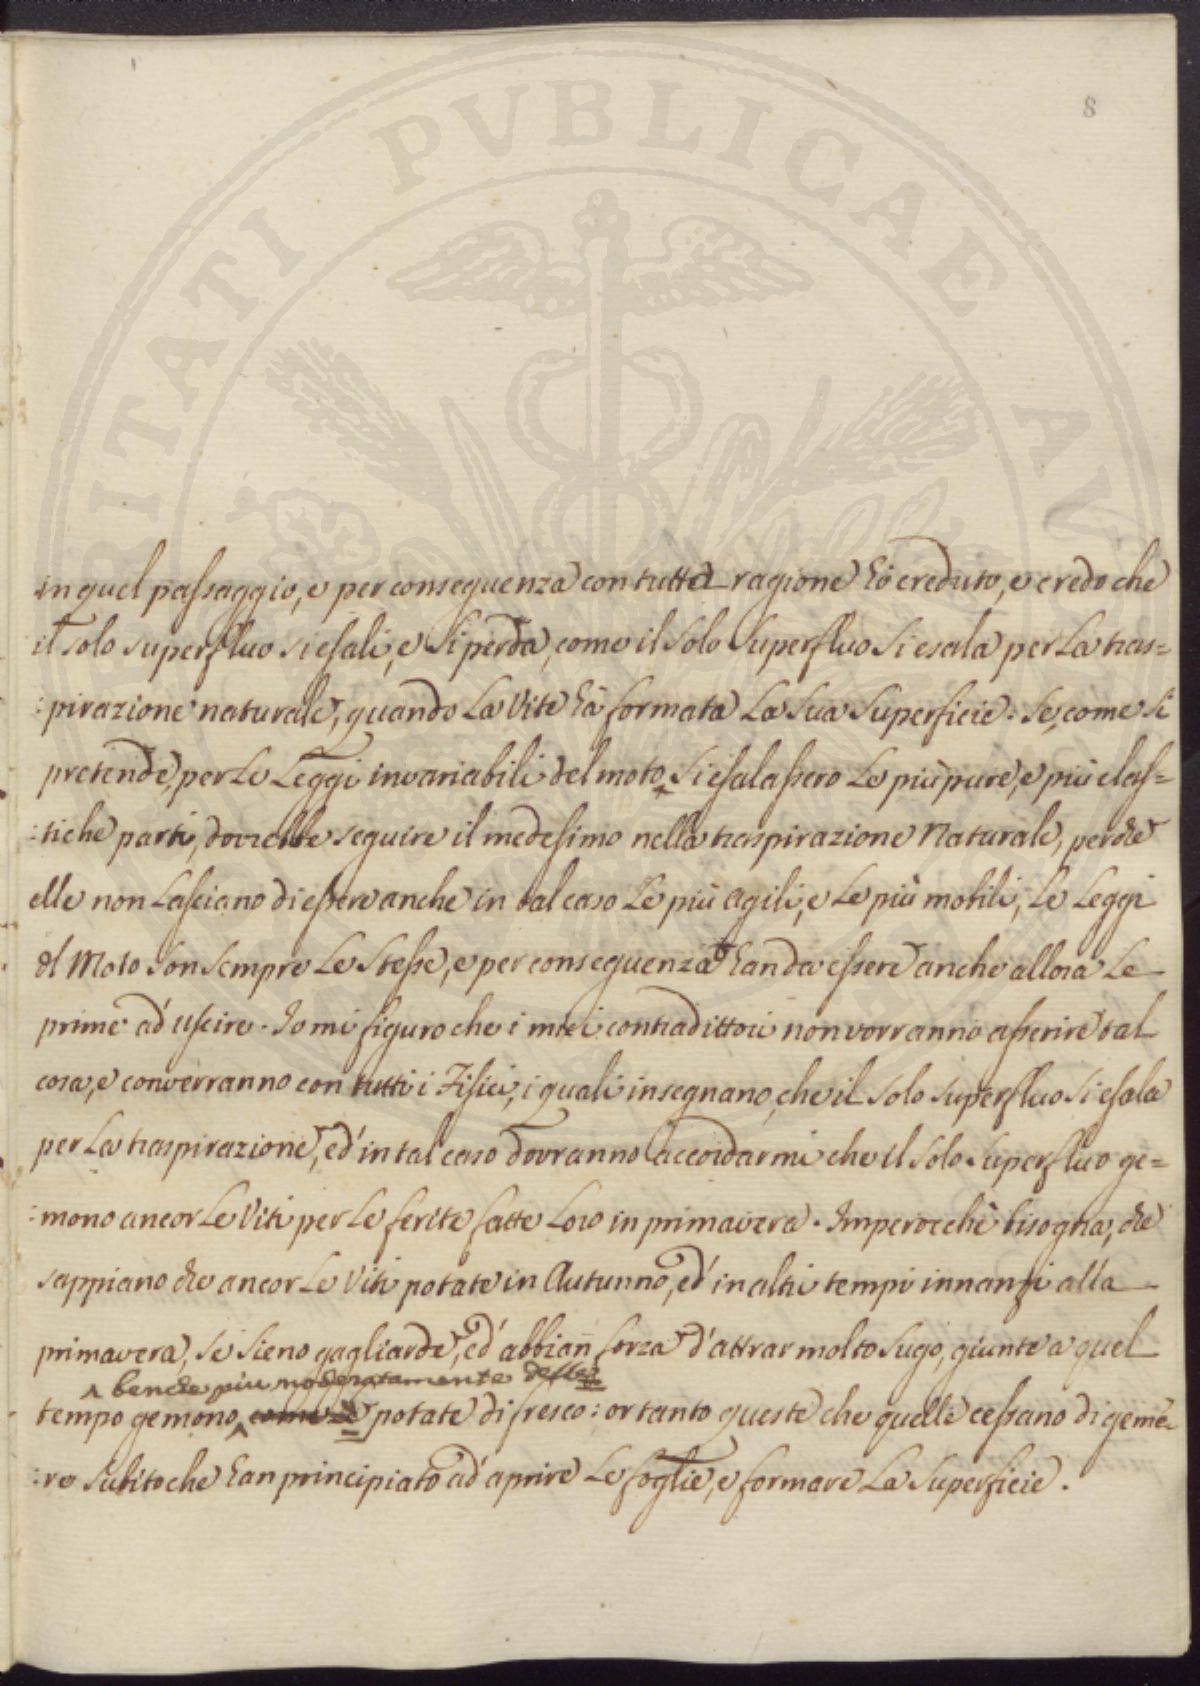 PROSPERITATI PUBLICAE AU
8
in quel passaggio, e per conseguenza con tutta ragione hò creduto, e credo che
il solo superfluo si esali, e si perda, come il solo superfluo si esala per la tras=
:pirazione naturale, quando la Vite hà formata la sua superficie. Se, come si
pretende, per le Leggi invariabili del moto si esalassero le più pure, e più elas=
:tiche parti, dovrebbe seguire il medesimo nella traspirazione Naturale, perche
elle non lasciano di essere anche in tal caso le più agili, e le più mobili, le Leggi
del Moto son sempre le stesse, e per conseguenza han da essere anche allora le
prime ad' uscire. Io mi figuro che i miei contradittori non vorranno asserire tal
cosa, e converranno con tutti i Fisici, i quali insegnano, che il solo superfluo si esala
per la traspirazione, ed' in tal caso dovranno accordarmi che il solo superfluo ge=
:mono ancor le Viti per le ferite fatte loro in primavera. Imperocchè bisogna, che
sappiano che ancor le Viti potate in Autunno, ed' in altri tempi innanzi alla
primavera, se sieno gagliarde, ed' abbian forza d'attrar molto sugo, giunte a quel
benche piu moderatamente delle
tempo gemono, come le potate di fresco: or tanto queste che quelle cessano di geme=
:re subito che han principiato ad' aprire le foglie, e formare la superficie.